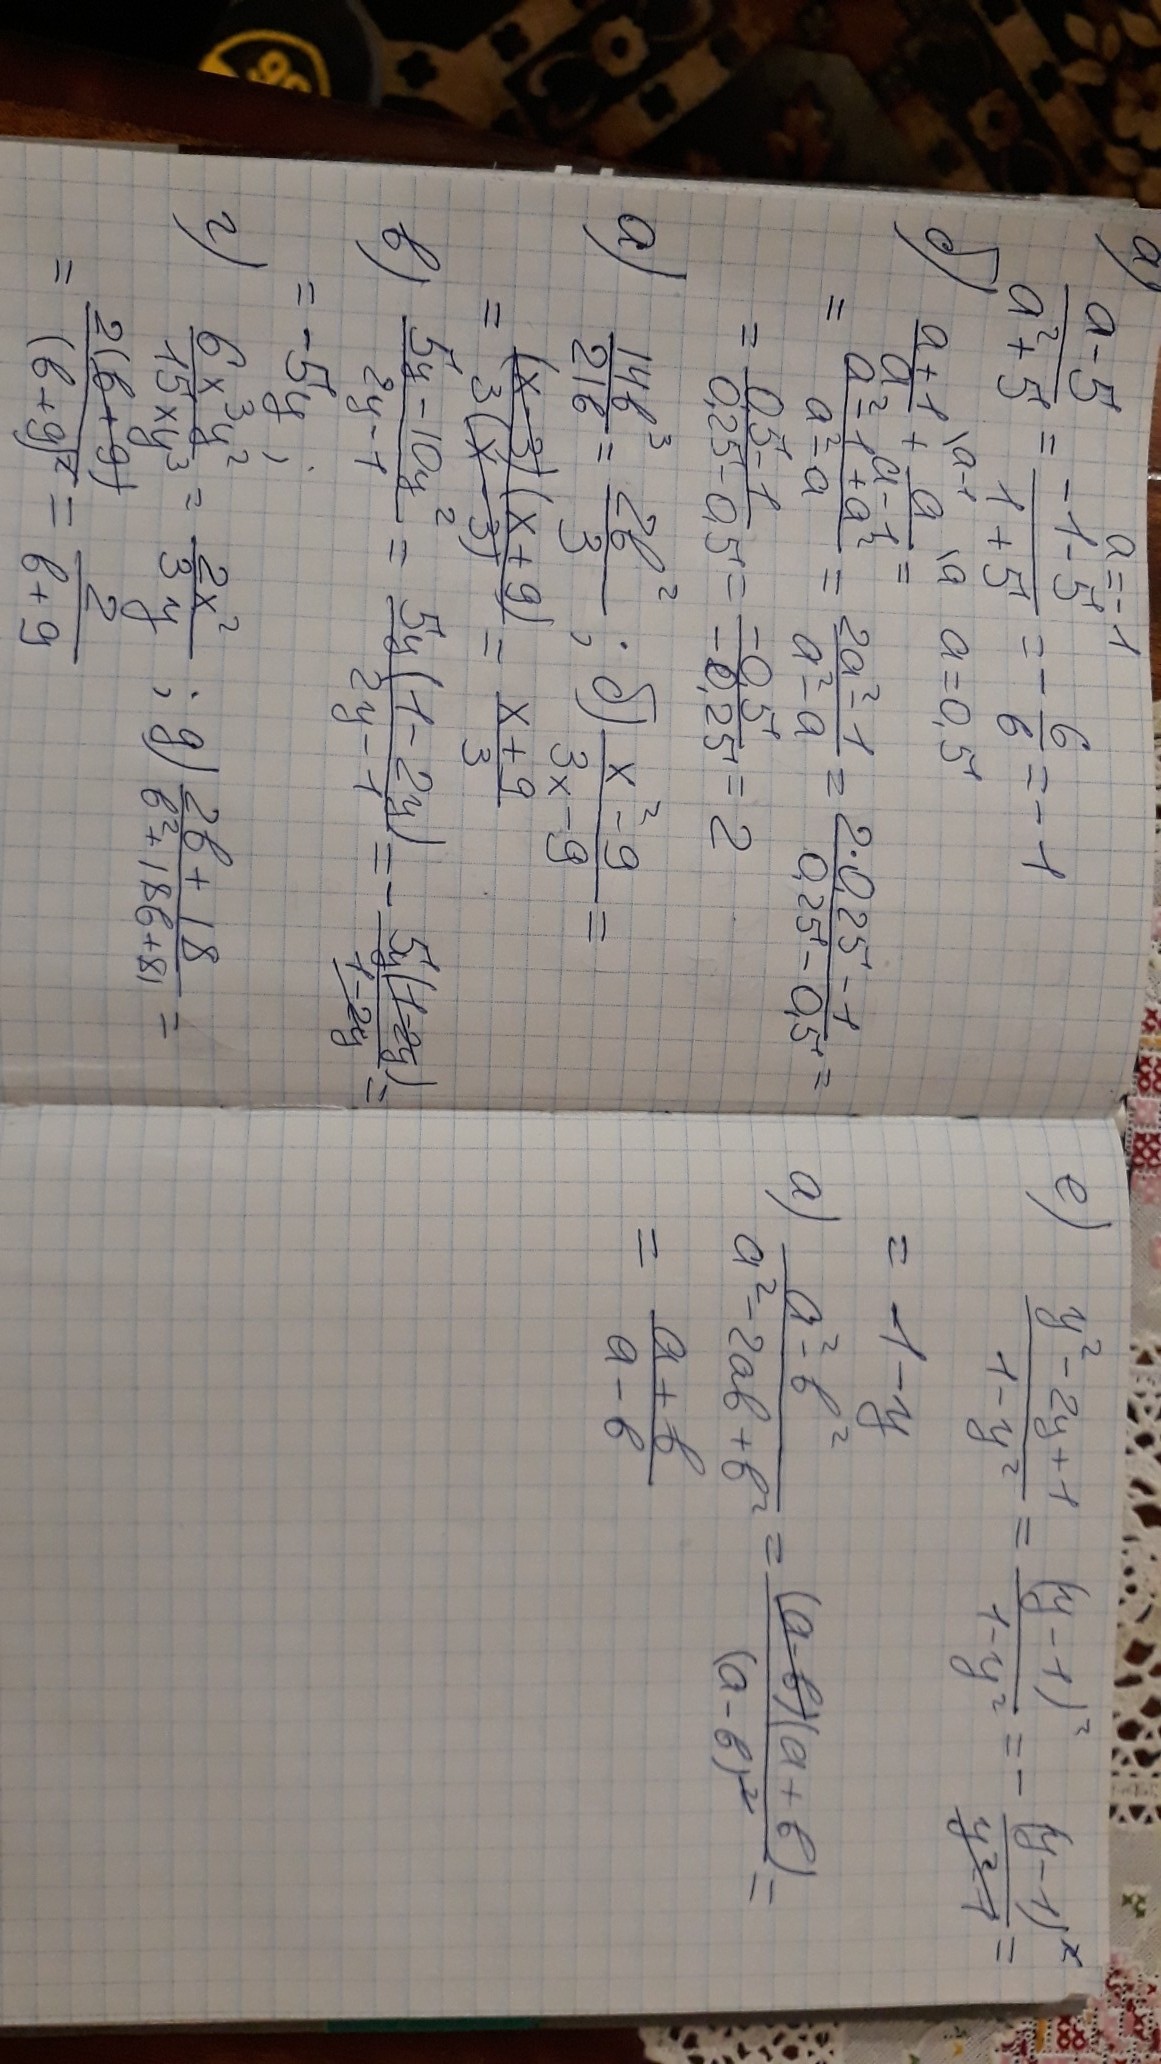 a) a-5/a²+5 = -1-5/1+5 = -6/6 = -1 a=-1
б) a+1/a \a-1 + a/a-1 \a = a=0,5
= a²-1+a²/a²-a = 2a²-1/a²-a = 2·0,25-1/0,25-0,5 =
= 0,5-1/0,25-0,5 = -0,5/-0,25 = 2
а) 14b³/21b = 2b²/3 ; б) x²-9/3x-9 =
= (x-3)(x+9)/3(x-3) = x+9/3
в) 5y-10y²/2y-1 = 5y(1-2y)/2y-1 = - 5y(1-2y)/1-2y =
= -5y ;
г) 6x³y²/15xy³ = 2x²/3y ; g) 2b+18/b²+18b+81 =
= 2(b+9)/(b+9)² = 2/b+9
е) y²-2y+1/1-y² = (y-1)²/1-y² = - (y-1)²/y²-1 =
= 1-y
а) a²-b²/a²-2ab+b² = (a-b)(a+b)/(a-b)² =
= a+b/a-b